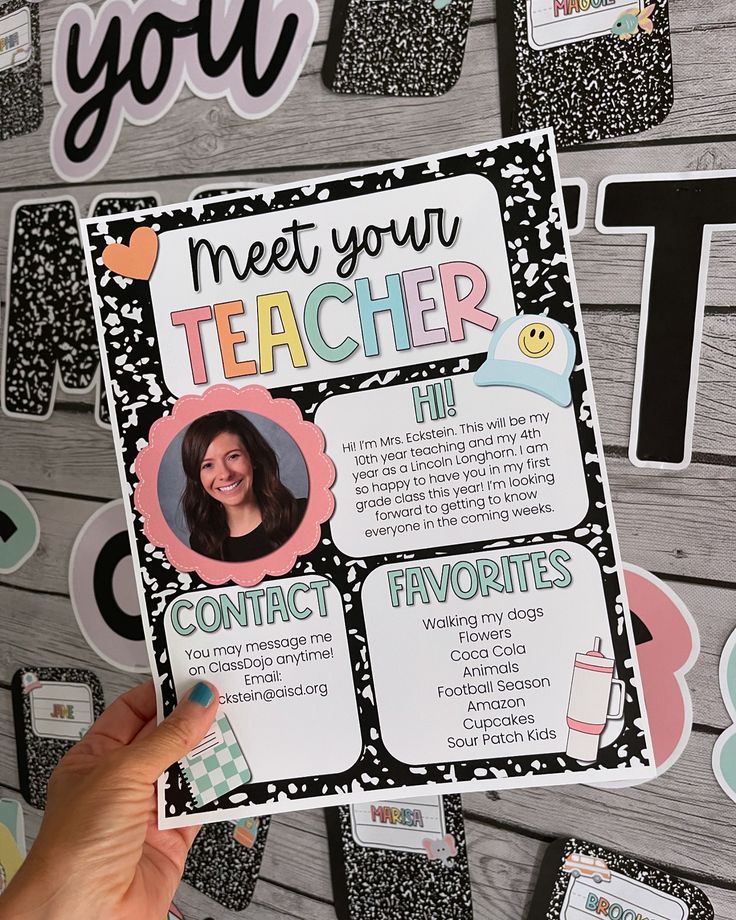 MAGGIE
you
T
Meet your
TEACHER
HI!
Hi! I'm Mrs. Eckstein. This will be my
10th year teaching and my 4th
year as a Lincoln Longhorn. I am
so happy to have you in my first
grade class this year! I'm looking
forward to getting to know
everyone in the coming weeks.
CONTACT
You may message me
on ClassDojo anytime!
Email:
ckstein@aisd.org
FAVORITES
Walking my dogs
Flowers
Coca Cola
Animals
Football Season
Amazon
Cupcakes
Sour Patch Kids
JOE
MARISA